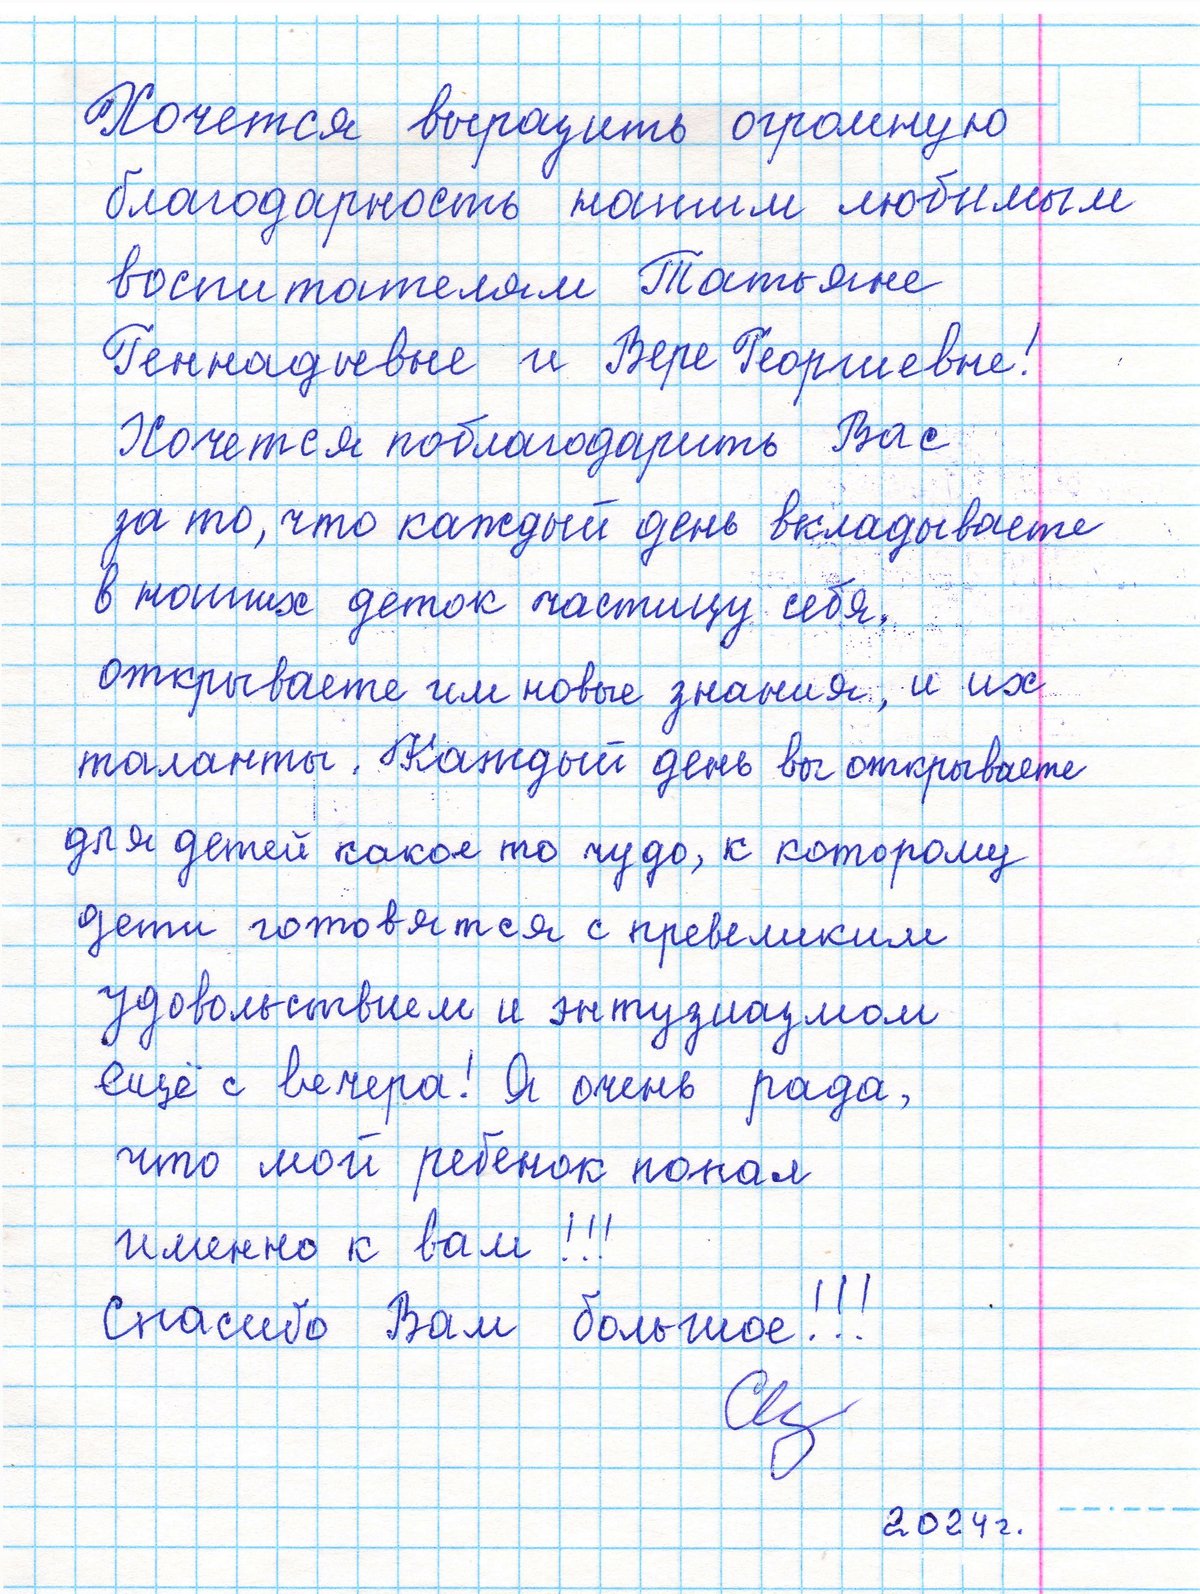 Хочется выразить огромную
благодарность нашим любимым
воспитателям Татьяне
Геннадьевне и Вере Георгиевне!
Хочется поблагодарить Вас
за то, что каждый день вкладываете
в наших деток частицу себя,
открываете им новые знания, и их
таланты. Каждый день вы открываете
для детей какое то чудо, к которому
дети готовятся с превеликим
удовольствием и энтузиазмом
ещё с вечера! Я очень рада,
что мой ребенок попал
именно к вам!!!
Спасибо Вам большое!!!
2024г.